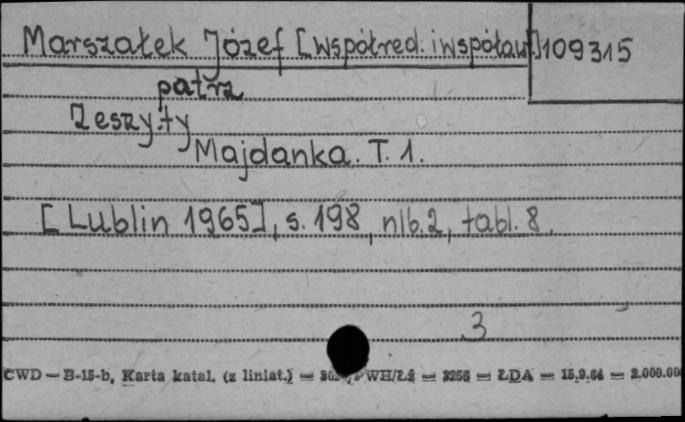 Marszałek Józef [współred. i współaut.] 109315
patrz
Zeszyty
Majdanka. T. 1.
[Lublin 1965], s. 198, nlb. 2, tabl. 8.
3
CWD — B-15-b, Karta katal. (z liniat.) — PWH/Łź — 3255 — ŁDA — 15.9.64 — 2.000.00